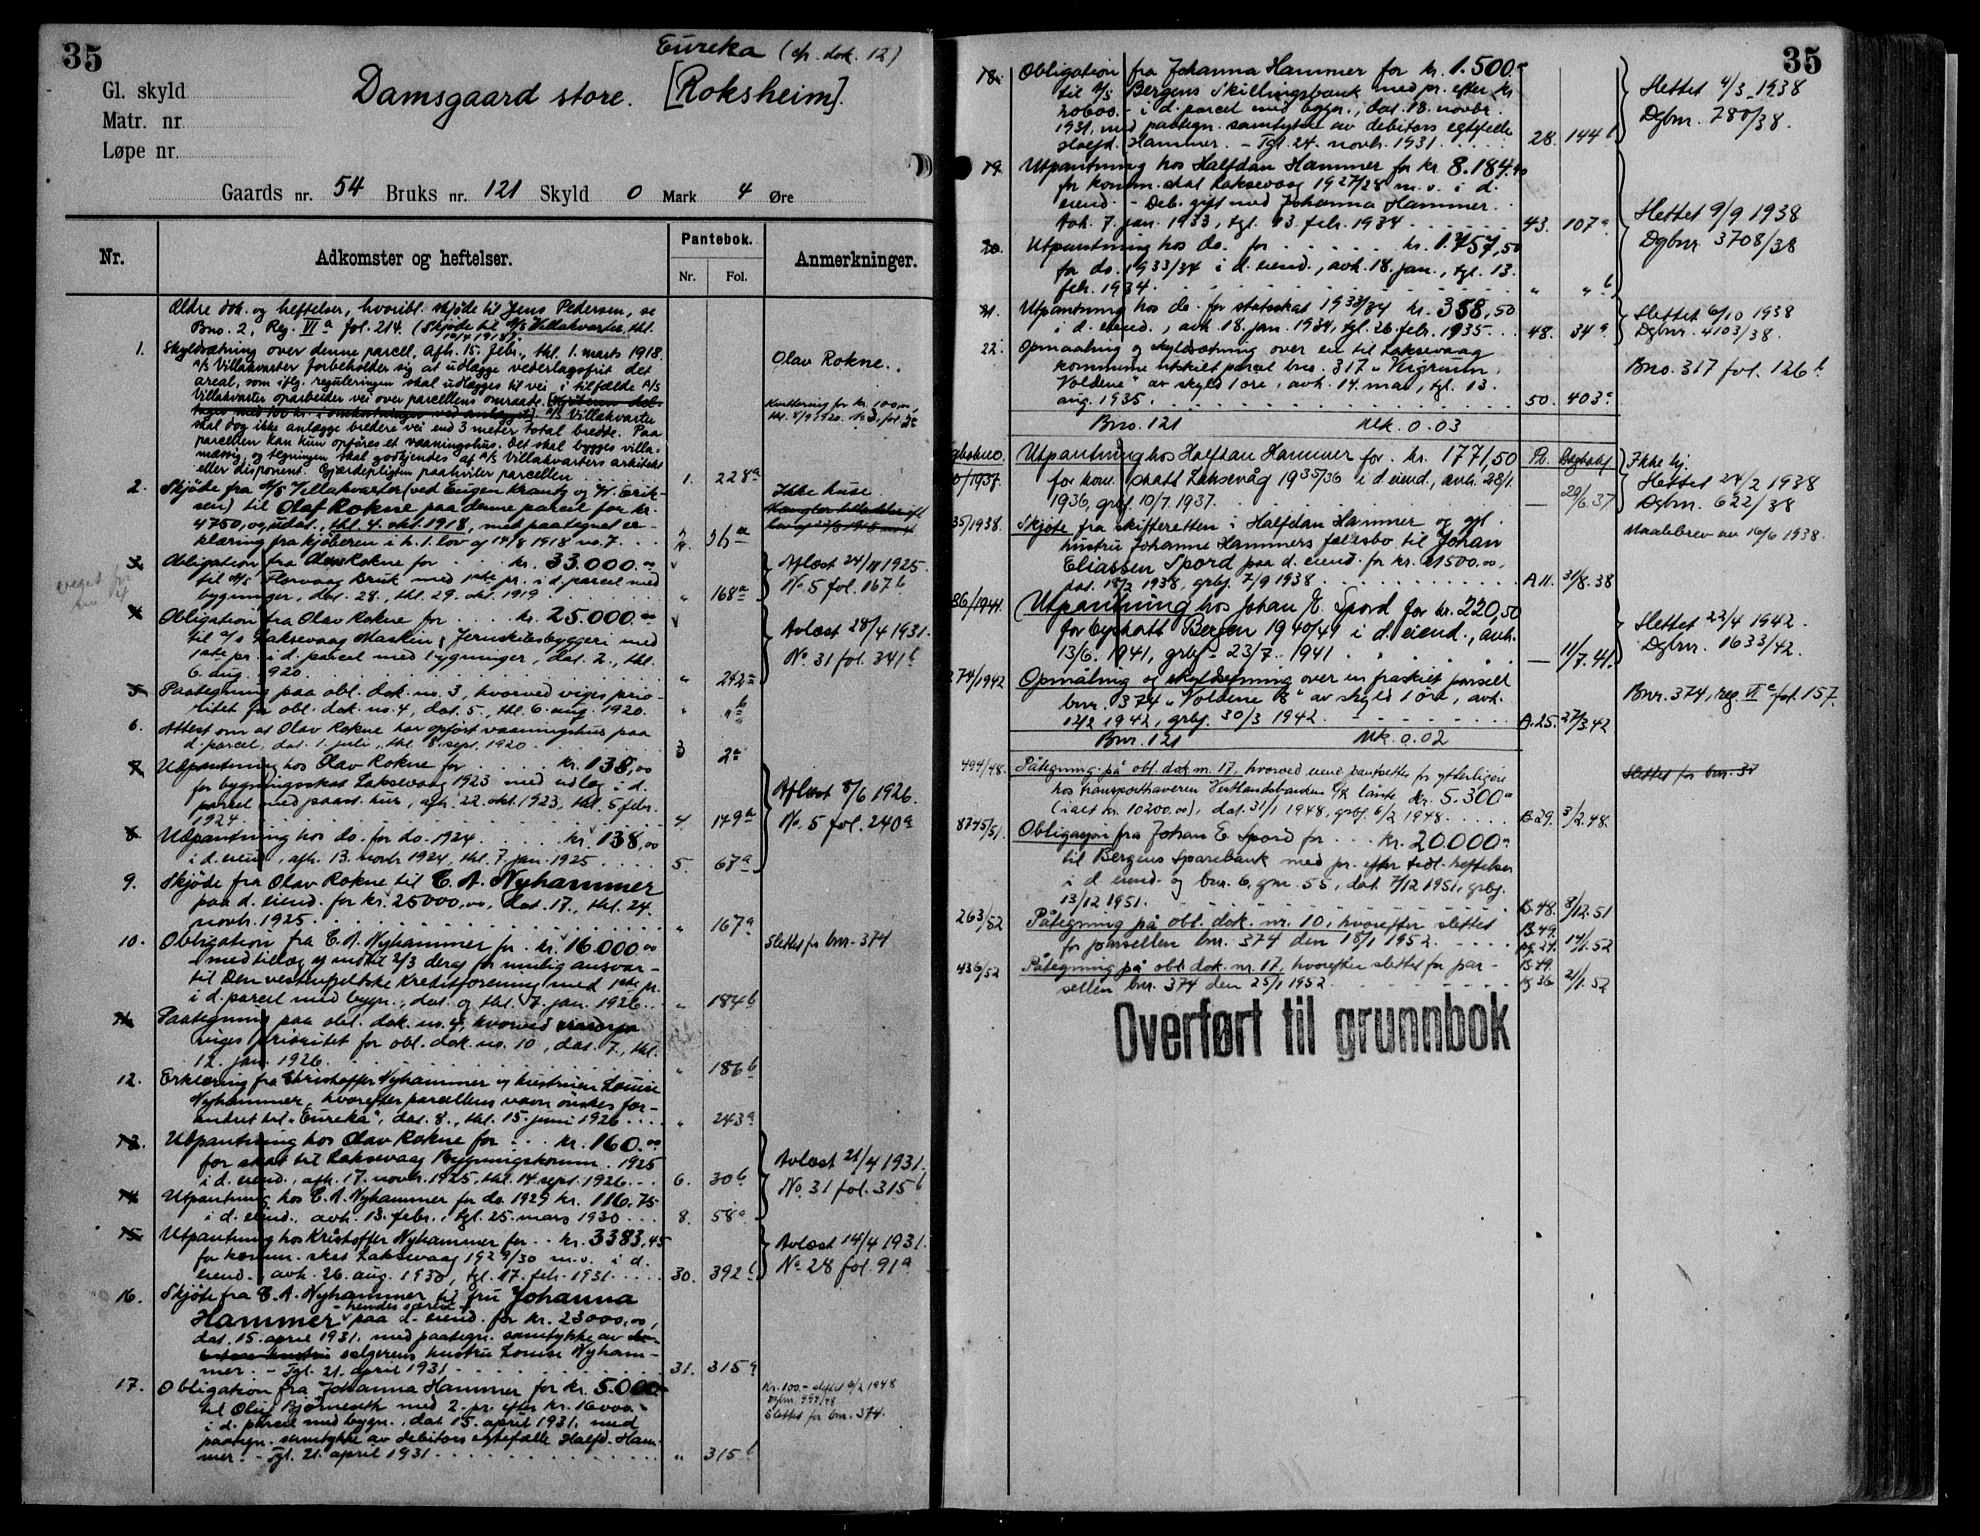 35
Eureka (cfr. dok. 12)
Gl. skyld
Damsgaard store. [Roksheim].
Matr. nr.
Løpe nr.
Gaards nr. 54 Bruks nr. 121 Skyld 0 Mark 4 Øre
Nr. Adkomster og heftelser. Pantebok. Nr. Fol. Anmerkninger.
Ældre dok. og heftelser, hvoribl. skjøde til Jens Pedersen, se
Bno. 2, Reg. VI a fol. 214. (Skjøde til A/S Villakvarter, thl.
10/4 1918).
1. Skyldsætning over denne parcel. Afh. 15. febr., thl. 1. marts 1918.
A/S Villakvarter forbeholder sig at udlægge vederlagsfrit det
areal, som iflg. reguleringen skal udlægges til vei, i tilfælde A/S
Villakvarter oparbeider vei over parcellens omraade.
A/S Villakvarter
skal dog ikke anlægge bredere vei end 3 meter total bredde. Paa
parcellen kan kun opføres et vaaningshus. Det skal bygges villa-
mæssig, og tegningen skal godkjendes af A/S Villakvarters arkitekt
eller disponent. Gjærdepligten paahviler parcellen 1. 228a
Olav Rokne.
Kvittering for kr. 100,00
thl. 8/9 1920. No 3, fol. 2a
2. Skjøde fra A/S Villakvarter (ved Eugen Krantz og W. Erik-
sen) til Olaf Rokne paa denne parcel for kr.
4750, udat., thl. 4. okt. 1918, med paategnet er-
klæring fra kjøberen i h. t. lov af 14/8 1918 no. 7. 56a
Ikke huse.
3. Obligation fra Olav Rokne for kr. 33.000.00
til A/S Florvaag Bruk med 1ste pr. i d. parcel med
bygninger, dat. 28., thl. 29. okt. 1919 „ 168a
Aflæst 24/11 1925.
No. 5 fol. 167b
4. Obligation fra Olav Rokne for kr. 25.000.00
til A/S Laksevaag Maskin & Jernskibsbyggeri med
1ste pr. i d. parcel med bygninger, dat. 2., thl.
6. aug. 1920. „ 242a
Avlæst 28/4 1931.
No. 31 fol. 341b
5. Paategning paa obl. dok. no. 3, hvorved viges prio-
ritet for obl. dok. no. 4, dat. 5., thl. 6. aug. 1920. „ „b
6. Attest om at Olav Rokne har opført vaaningshus paa
d. parcel, dat. 1. juli, thl. 8. sept. 1920 3 2a
7. Udpantning hos Olav Rokne for kr. 138,00
for bygningsskat Laksevaag 1923 med udlæg i d.
parcel med paast. hus, afh. 22. okt. 1923, thl. 5. febr.
1924. 4. 149a
Aflæst 8/6 1926.
No. 5 fol. 240a
8. Udpantning hos do. for do. 1924 kr. 138,00
i d. eiend., afh. 13. novb. 1924, thl. 7. jan. 1925 5. 67a
9. Skjøde fra Olav Rokne til C. A. Nyhammer
paa d. eiend. for kr. 25000,00, dat. 17., thl. 24.
novb. 1925 „ 167a
10. Obligation fra C. A. Nyhammer for kr. 16.000.00
med tillæg af indtil 2/3 deraf for mulig ansvar-
til Den vestenfjeldske Kreditforening med 1ste pr.
i d. parcel med bygn., dat. og thl. 7. jan. 1926. „ 184b
Slettet for bnr. 374
11. Paategning paa obl. dok. no. 4, hvorved
viges prioritet for obl. dok. no. 10, dat. 7., thl.
12. jan. 1926 „ 186b
12. Erklæring fra Christoffer Nyhammer og hustruen Louise
Nyhammer, hvorefter parcellens navn ønskes for-
andret til „Eureka“, dat. 8., thl. 15. juni 1926 „ 243a
13. Udpantning hos Olav Rokne for kr. 160.00
for skat til Laksevaag Bygningskomm. 1925
i d. eiend., afh. 17. novb. 1925, thl. 14. sept. 1926 6. 30b
Avlæst 21/4 1931.
No. 31 fol. 315b
14. Utpantning hos C. A. Nyhammer for do. 1929 kr. 116.75
i d. eiend., avh. 13. febr., tgl. 25. mars 1930 8. 58a
15. Utpantning hos Kristoffer Nyhammer for kr. 3383,45
for komm. skat Laksevaag 1929/30 m.v. i d.
eiend., avh. 26. aug. 1930, tgl. 17. feb. 1931 30. 392b
Avlæst 14/4 1931.
No. 28 fol. 91a
16. Skjøte fra C. A. Nyhammer til fru Johanna
Hammer - hendes særeie - paa d. eiend. for kr. 23000,00,
dat. 15. april 1931, med paategn. samtykke av
selgerens hustru Louise Nyham-
mer. - Tgl. 21. april 1931 31. 315a
17. Obligation fra Johanna Hammer for kr. 5.000
til Oluf med 2. pr. efter kr. 16000.-
i d. parcel med bygn., dat. 15. april 1931, med
paategn. samtykke av debitors egtefælle Halfd. Ham-
mer. - Tgl. 21. april 1931 „ 315b
Kr. 100.- slettet 6/2 1948
Dgbnr. 494/48
Slettet for bnr. 374.
35
18. Obligation fra Johanna Hammer for kr. 1.500.
til A/S Bergens Skillingsbank med pr. efter kr.
20600.- i d. parcel med bygn., dat. 18. novbr.
1931, med paategn. samtykke av debitors egtefælle
Halfd. Hammer. - Tgl. 24. novb. 1931 28. 144b
Slettet 4/3 1938
Dgbnr. 780/38.
19. Utpantning hos Halfdan Hammer for kr. 8.184.40
for komm. skat Laksevaag 1927/28 m.v. i d.
eiend. - Deb. gift med Johanna Hammer.
Avh. 7. jan. 1933, tgl. 13. feb. 1934 43. 107a
Slettet 9/9 1938
Dgbnr. 3708/38
20. Utpantning hos do. for kr. 1.757,50
for do. 1933/34 i d. eiend., avh. 18. jan., tgl. 13.
feb. 1934 „ „b
21. Utpantning hos do. for statsskat 1933/34 kr. 358,50
i d. eiend., avh. 18. jan. 1934, tgl. 26. feb. 1935 48. 34a
Slettet 6/10 1938
Dgbnr. 4103/38.
22. Opmaaling og skyldsetning over en til Laksevaag
kommune utskilt parcel bno. 317 „Veigrunn,
Voldene“ av skyld 1 øre, avh. 14. mai, tgl. 13.
aug. 1935. 50. 403a
Bno. 317 fol. 126b
Bno. 121 Mk. 0.03
Utpantning hos Halfdan Hammer for kr. 1771,50
for kom. skatt Laksevåg 1935/36 i d. eiend., avh. 28/1
1936, grbf. 10/7 1937. — 29/6.37
Ikke hj.
Slettet 24/2 1938
Dgbnr. 622/38
35/1938. Skjøte fra skifteretten i Halfdan Hammer og gjl.
hustru Johanne Hammers fellesbo til Johan
Eliassen Spord paa d. eiend. for kr. 21500.00,
dat. 18/2 1938, grbf. 7/9 1938 A 11. 31/8.38
Maalebrev av 16/6 1938.
86/1941. Utpantning hos Johan E. Spord for kr. 220,50
for byskatt Bergen 1940/41 i d. eiend., avh.
13/6. 1941, grbf. 23/7. 1941 — 11/7.41.
Slettet 22/4 1942.
Dgbnr. 1633/42.
274/1942 Opmåling og skyldsetning over en fraskilt parsell
bnr. 374 „Voldene B“ av skyld 1 øre, avh.
12/2 1942, grbf. 30/3 1942. A. 25. 27/3 42
Bnr. 374, reg. VI c fol. 157.
Bnr. 121 Mk. 0.02
494/48. Påtegning på obl. dok. nr. 17, hvorved eiend. pantsettes for ytterligere
hos transporthaveren Vestlandsbanken A/S lånte kr. 5.300.00
(ialt kr. 10200.00), dat. 31/1 1948, grbf. 6/2 1948 B. 29. 3/2.48.
Slettet for bnr. 37
8745/51. Obligasjon fra Johan E. Spord for kr. 20.000.
til Bergens Sparebank med pr. efter tidl. heftelser
i d. eiend. og bnr. 6, gnr. 55, dat. 7/12 1951, grbf.
13/12 1951. B. 48. 8/12.51
263/52 Påtegning på obl. dok. nr. 10, hvorefter slettet
for parsellen bnr. 374 den 18/1 1952. B. 49. pg. 27. 17/1.52
436/52 Påtegning på obl. dok. nr. 17, hvorefter slettet for par-
sellen bnr. 374 den 25/1 1952. B. 49. pg. 36 21/1.52
Overført til grunnbok